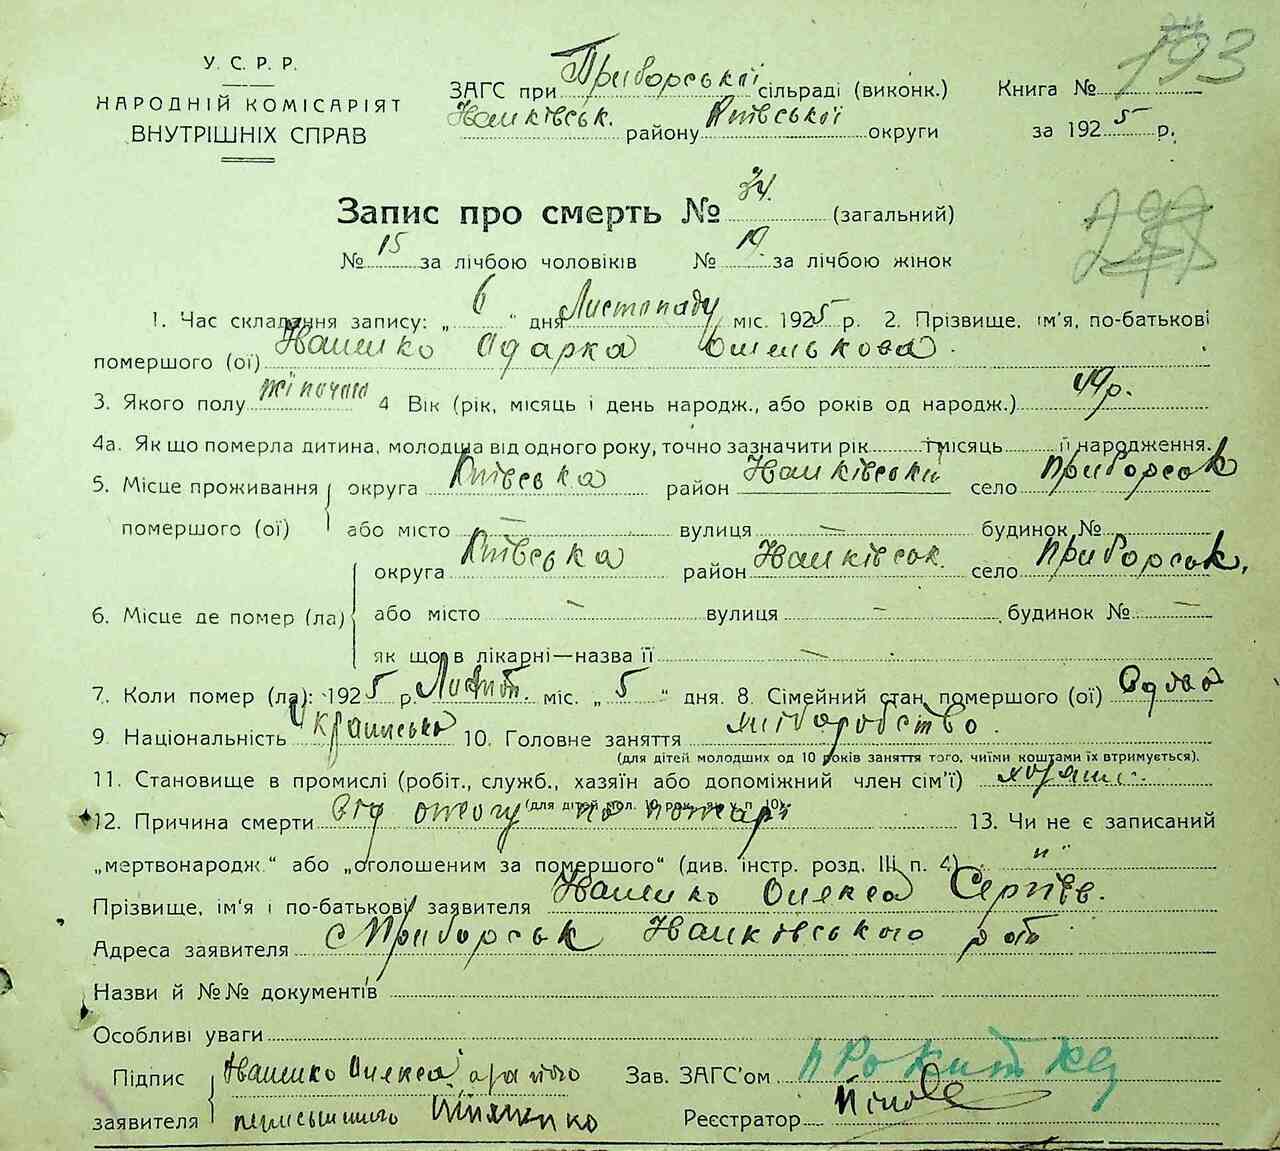 193
У. С. Р. Р.
НАРОДНІЙ КОМІСАРІЯТ
ВНУТРІШНІХ СПРАВ
ЗАГС при Приборській сільраді (виконк.)
Іванківськ. району Київської округи
Книга №
за 1925 р.
Запис про смерть № 34. (загальний)
№ 15 за лічбою чоловіків № 19 за лічбою жінок
1. Час складання запису: „6“ дня Листопаду міс. 1925 р. 2. Прізвище, ім'я, по-батькові
помершого (ої) Іваненко Одарка
3. Якого полу жіночого 4 Вік (рік, місяць і день народж., або років од народж.) 49р.
4а. Як що померла дитина, молодша від одного року, точно зазначити рік і місяць її народження.
5. Місце проживання помершого (ої) округа Київська район Іванківський село Приборськ
або місто — вулиця — будинок №
6. Місце де помер (ла) округа Київська район Іванківськ. село Приборськ,
або місто — вулиця — будинок № —
як що в лікарні—назва її —
7. Коли помер (ла): 1925 р. Листоп. міс. „5“ дня. 8. Сімейний стан помершого (ої)
9. Національність Українська 10. Головне заняття хліборобство.
(для дітей молодших од 10 років заняття того, чиїми коштами їх втримується).
11. Становище в промислі (робіт., служб., хазяїн або допоміжний член сім'ї) хазяин.
(для дітей мол. 10 рок. як у п. 10).
12. Причина смерти Від опіогу по пожарі 13. Чи не є записаний
„мертвонародж.“ або „оголошеним за помершого“ (див. інстр. розд. III п. 4) „ н “
Прізвище, ім'я і по-батькові заявителя Іваненко Олекса Сергіїв.
Адреса заявителя с Приборськ Іванковського
Назви й №№ документів
Особливі уваги
Підпис заявителя Іваненко Олекса
Зав. ЗАГС'ом
Реєстратор